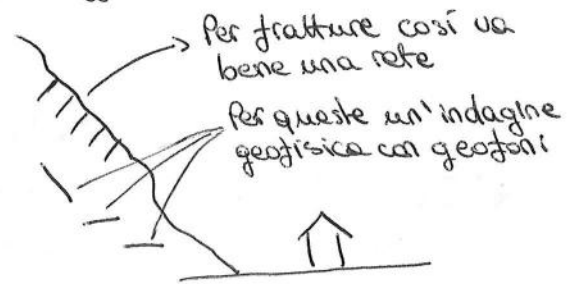 Per fratture così va
bene una rete
Per queste un'indagine
geofisica con geofoni